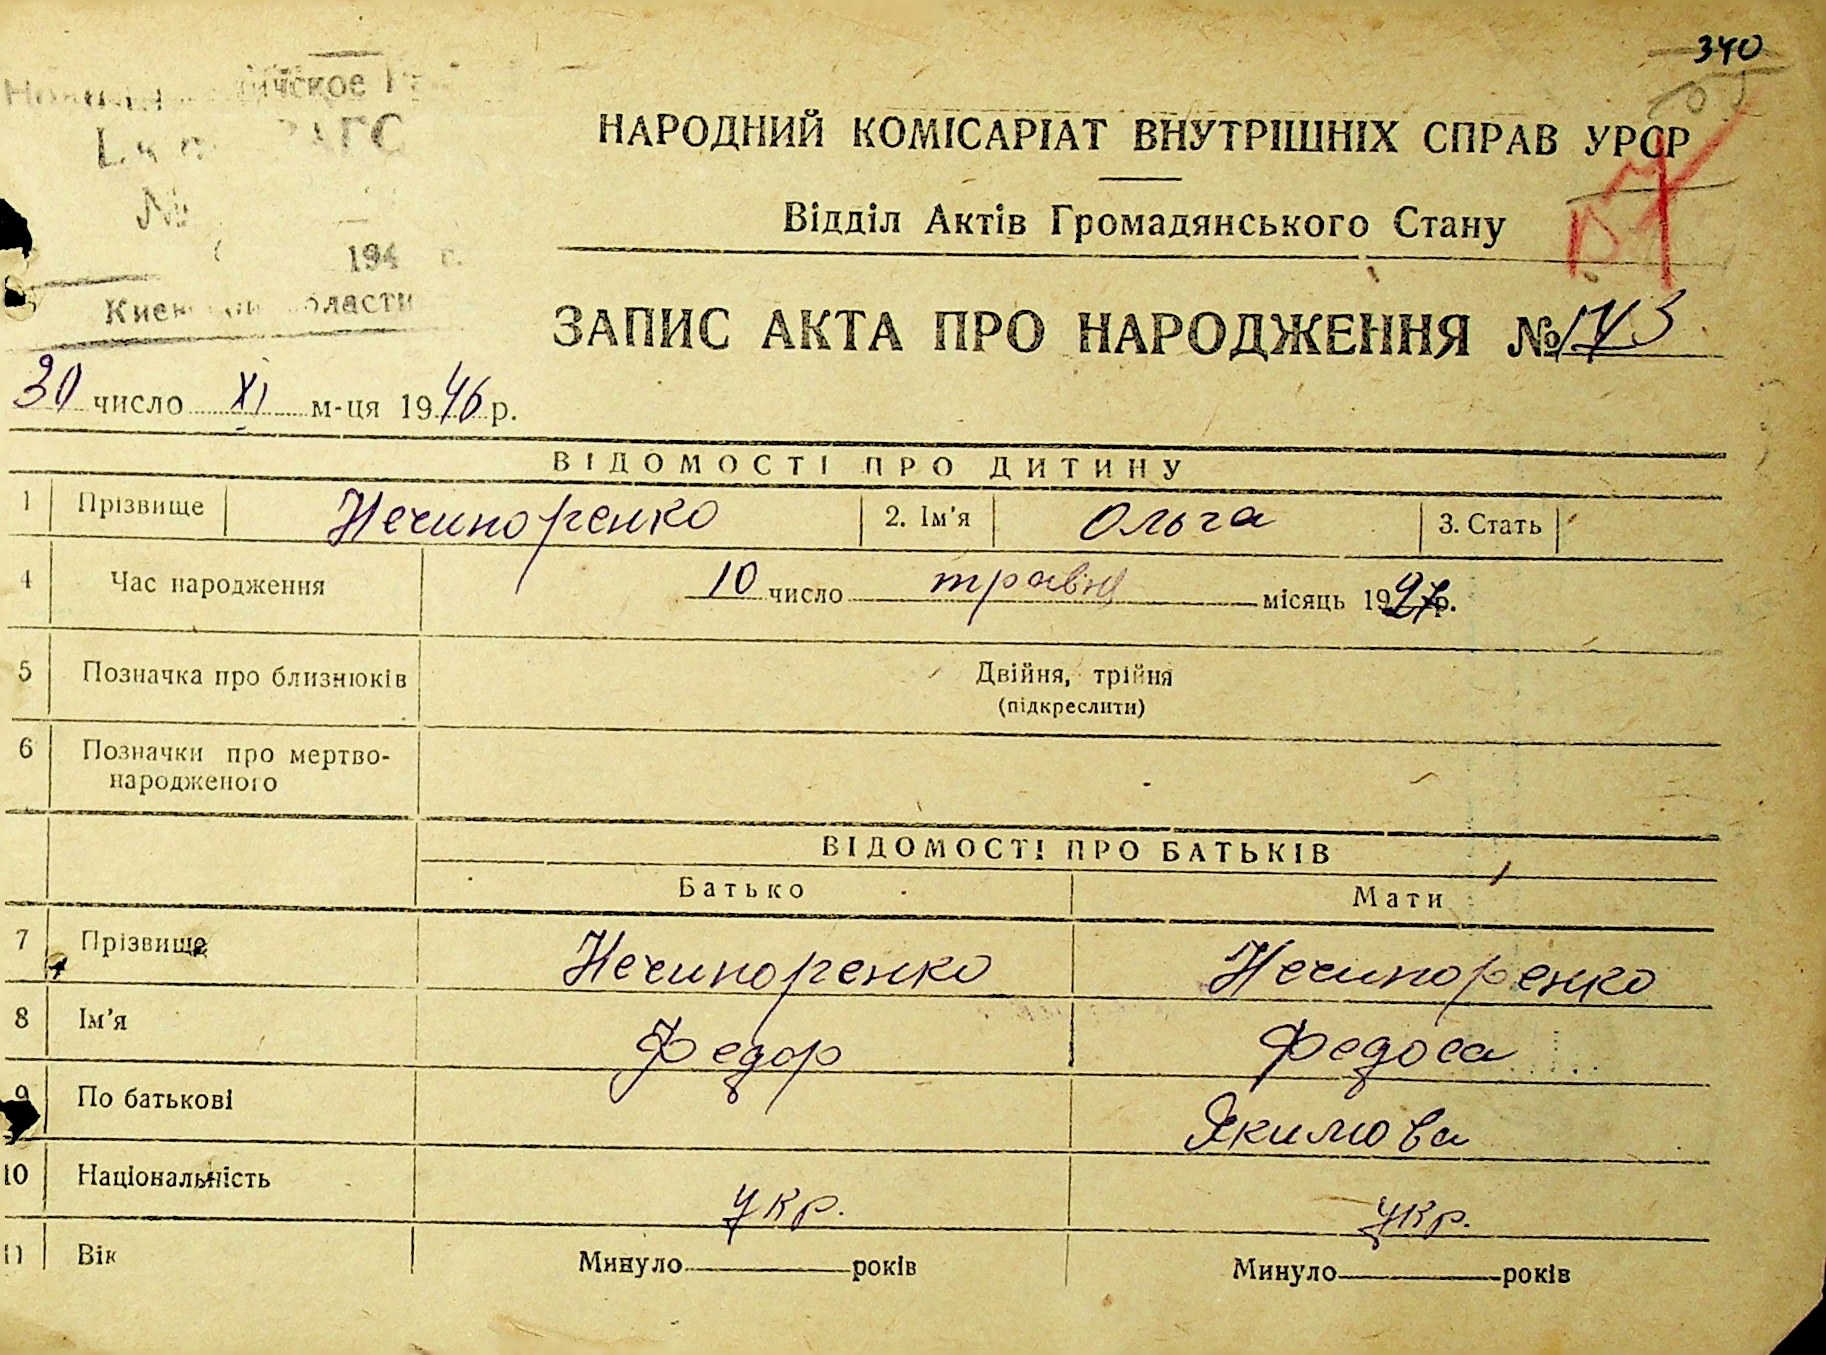 340
194 г.
НАРОДНИЙ КОМІСАРІАТ ВНУТРІШНІХ СПРАВ УРСР
Відділ Актів Громадянського Стану
ЗАПИС АКТА ПРО НАРОДЖЕННЯ № 173
30 число XI м-ця 1946 р.
ВІДОМОСТІ ПРО ДИТИНУ
1 Прізвище Нечипоренко 2. Ім'я Ольга 3. Стать
4 Час народження 10 число травня місяць 1927 р.
5 Позначка про близнюків Двійня, трійня
(підкреслити)
6 Позначки про мертво-
народженого
ВІДОМОСТІ ПРО БАТЬКІВ
Батько Мати
7 Прізвище Нечипоренко Нечипоренко
8 Ім'я Федор Федоса
9 По батькові Якимова
10 Національність укр. укр.
11 Вік Минуло років Минуло років